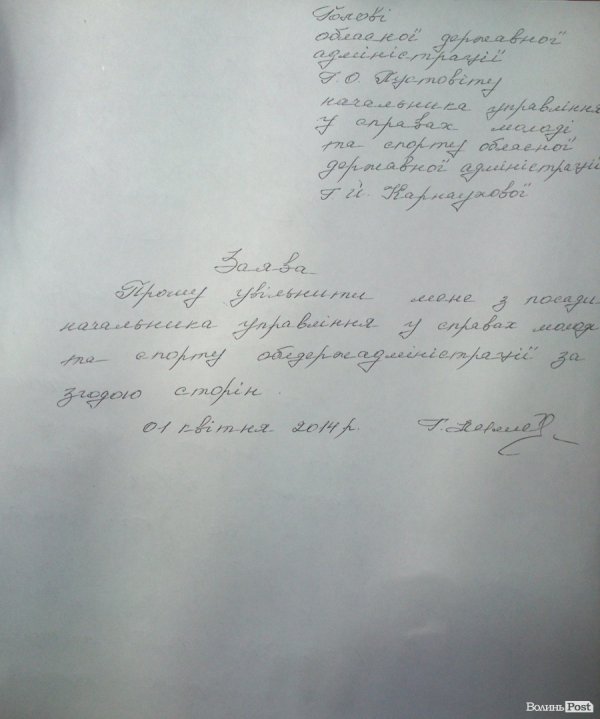 Голові
обласної державної
адміністрації
Г.О. Пустовіту
начальника управління
у справах молоді
та спорту обласної
державної адміністрації
Г Й. Карнаухової
Заява
Прошу увільнити мене з посади
начальника управління у справах молоді
та спорту облдержадміністрації за
згодою сторін.
01 квітня 2014 р.
Г.
ВолиньPost